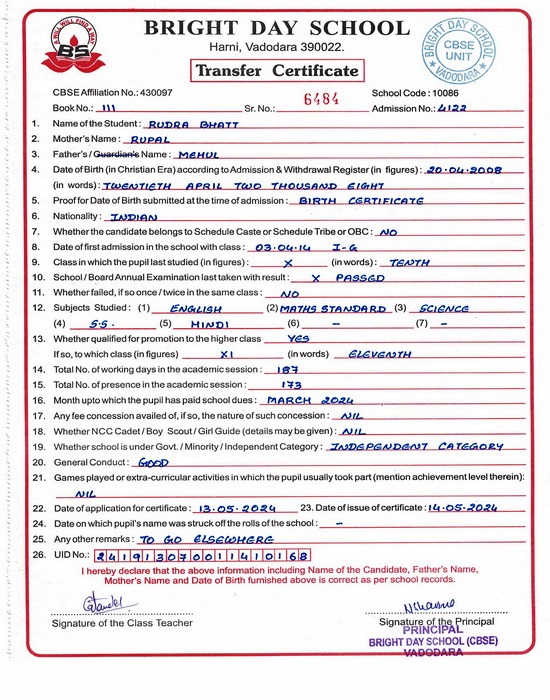 A WILL WILL FIND A WAY
BS
BRIGHT DAY SCHOOL
Harni, Vadodara 390022.
Transfer Certificate
BRIGHT DAY SCHOOL
CBSE
UNIT
VADODARA
CBSE Affiliation No.: 430097 School Code : 10086
Book No.: 111 Sr. No.: 6484 Admission No.: 4122
1. Name of the Student : RUDRA BHATT
2. Mother's Name : RUPAL
3. Father's / Guardian's Name : MEHUL
4. Date of Birth (in Christian Era) according to Admission & Withdrawal Register (in figures) : 20.04.2008
(in words) : TWENTIETH APRIL TWO THOUSAND EIGHT
5. Proof for Date of Birth submitted at the time of admission : BIRTH CERTIFICATE
6. Nationality : INDIAN
7. Whether the candidate belongs to Schedule Caste or Schedule Tribe or OBC : NO
8. Date of first admission in the school with class : 03.04.14 I-G
9. Class in which the pupil last studied (in figures) : X (in words) : TENTH
10. School / Board Annual Examination last taken with result : X PASSED
11. Whether failed, if so once / twice in the same class : NO
12. Subjects Studied : (1) ENGLISH (2) MATHS STANDARD (3) SCIENCE
(4) S.S. (5) HINDI (6) – (7) –
13. Whether qualified for promotion to the higher class YES
If so, to which class (in figures) XI (in words) ELEVENTH
14. Total No. of working days in the academic session : 187
15. Total No. of presence in the academic session : 173
16. Month upto which the pupil has paid school dues : MARCH 2024
17. Any fee concession availed of, if so, the nature of such concession : NIL
18. Whether NCC Cadet / Boy Scout / Girl Guide (details may be given) : NIL
19. Whether school is under Govt. / Minority / Independent Category : INDEPENDENT CATEGORY
20. General Conduct : GOOD
21. Games played or extra-curricular activities in which the pupil usually took part (mention achievement level therein):
NIL
22. Date of application for certificate : 13.05.2024 23. Date of issue of certificate : 14.05.2024
24. Date on which pupil's name was struck off the rolls of the school : –
25. Any other remarks : TO GO ELSEWHERE
26. UID No.: 241913070011410168
I hereby declare that the above information including Name of the Candidate, Father's Name,
Mother's Name and Date of Birth furnished above is correct as per school records.
Signature of the Class Teacher Signature of the Principal
PRINCIPAL
BRIGHT DAY SCHOOL (CBSE)
VADODARA